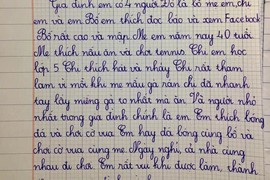 Gia đình em có 4 người. Đó là bố mẹ em, chị
em và em. Bố em thích đọc báo và xem Facebook
Bố rất cao và mập. Mẹ em năm nay 40 tuổi
Mẹ thích nấu ăn và chơi tennis. Chị em học
lớp 5. Chị thích hát và nhảy. Chị rất tham
lam vì mỗi khi mẹ nấu gà rán chị đã nhanh
tay lấy miếng gà to nhất mà ăn. Và người nhỏ
nhất trong gia đình chính là em. Em thích bóng
đá và chơi cờ vua. Em hay đá bóng cùng bố và
chơi cờ vua cùng mẹ. Ngày nghỉ, cả nhà cùng
nhau đi chơi. Em rất vui khi được làm, thành